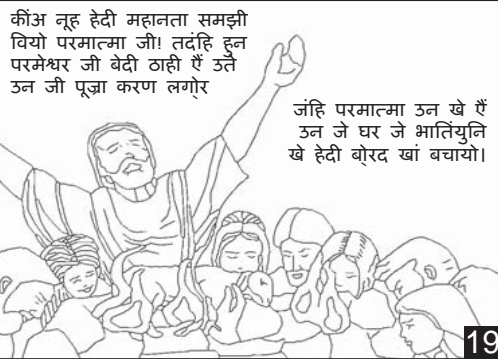 कींअ नूह हेदी महानता समझी
वियो परमात्मा जी! तदंहि हुन
परमेश्वर जी बेदी ठाही ऐं उते
उन जी पूजा॒ करण लगो॒र
जंहि परमात्मा उन खे ऐं
उन जे घर जे भातिंयुनि
खे हेदी बो॒रद खां बचायो।
19